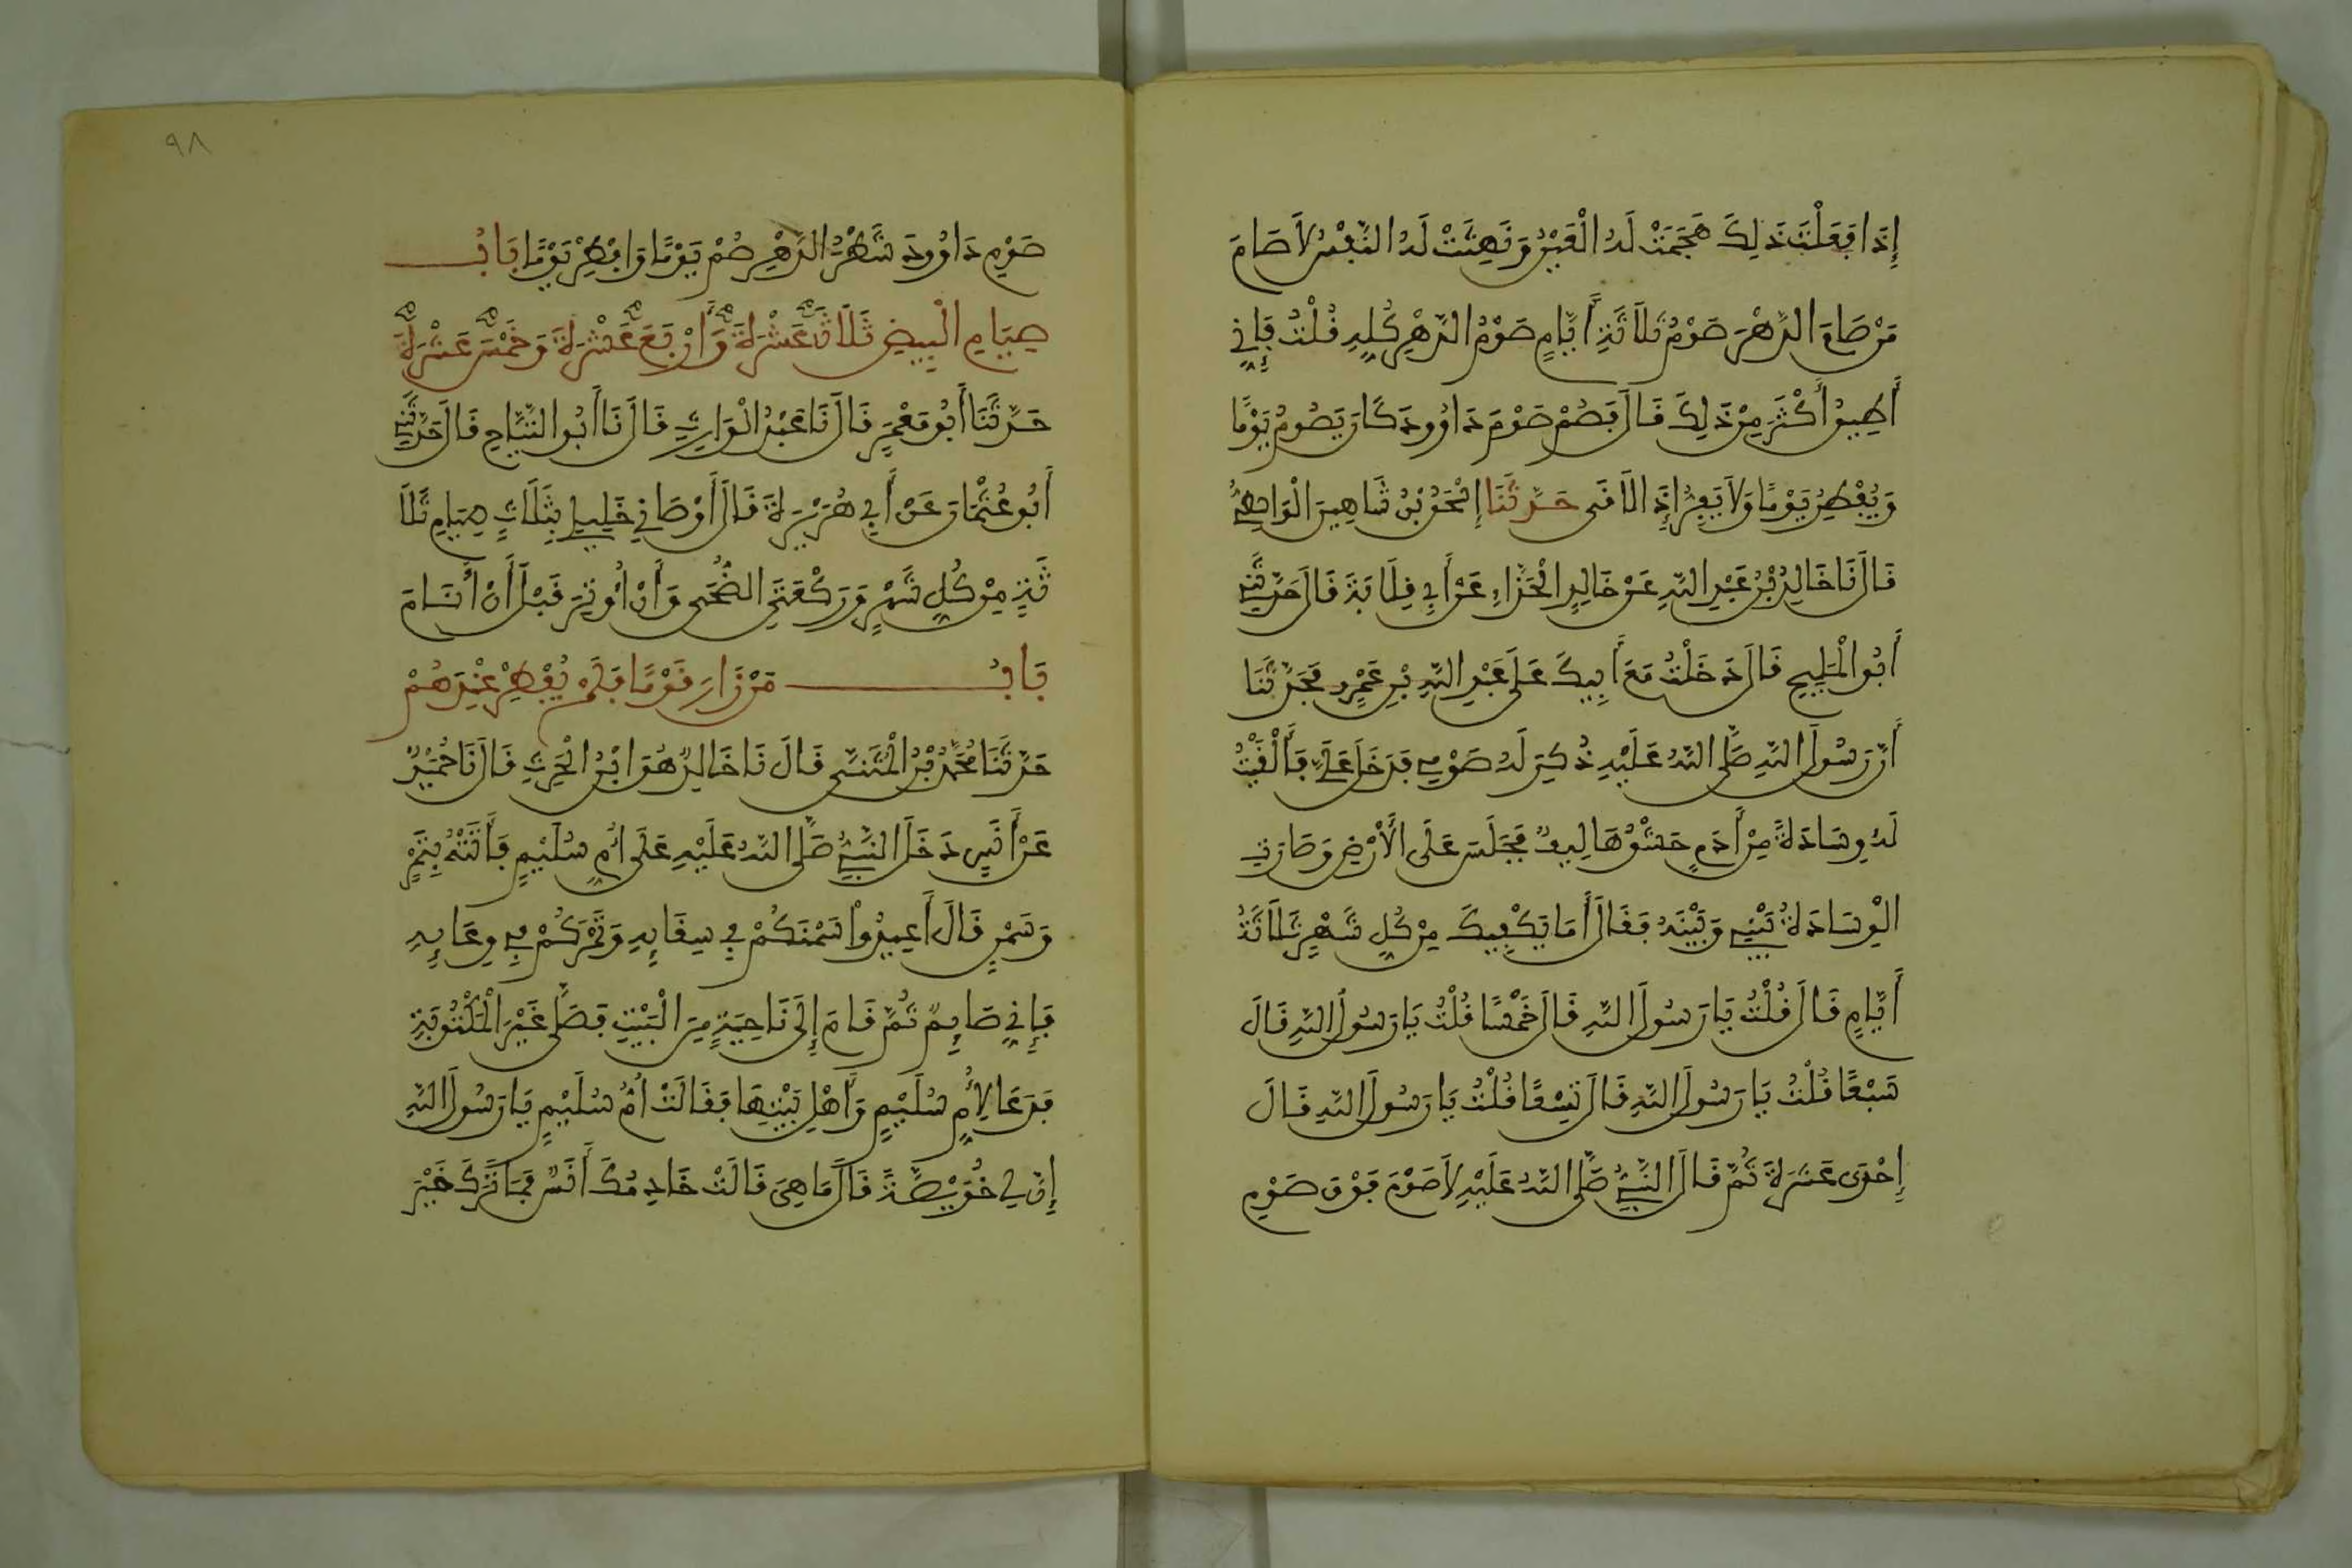 إِذَا فَعَلْتَ ذَلِكَ هَجَمَتْ لَهُ الْعَيْنُ وَنَهِتَتْ لَهُ النَّفْسُ لاَ صَامَ
مَنْ صَامَ الدَّهْرَ صَوْمُ ثَلاَثَةِ أَيَّامٍ صَوْمُ الدَّهْرِ كُلِّهِ قُلْتُ فَإِنِّي
أُطِيقُ أَكْثَرَ مِنْ ذَلِكَ قَالَ فَصُمْ صَوْمَ دَاوُودَ كَانَ يَصُومُ يَوْمًا
وَيُفْطِرُ يَوْمًا وَلاَ يَفِرُّ إِذَا لاَقَى حَدَّثَنَا إِسْحَقُ بْنُ شَاهِينَ الْوَاسِطِيُّ
قَالَ نَا خَالِدُ بْنُ عَبْدِ اللَّهِ عَنْ خَالِدٍ الْحَذَّاءِ عَنْ أَبِي قِلَابَةَ قَالَ حَدَّثَنِي
أَبُو الْمَلِيحِ قَالَ دَخَلْتُ مَعَ أَبِيكَ عَلَى عَبْدِ اللَّهِ بْنِ عَمْرٍو فَحَدَّثَنَا
أَنَّ رَسُولَ اللَّهِ صَلَّى اللَّهُ عَلَيْهِ ذُكِرَ لَهُ صَوْمِي فَدَخَلَ عَلَيَّ فَأَلْقَيْتُ
لَهُ وِسَادَةً مِنْ أَدَمٍ حَشْوُهَا لِيفٌ فَجَلَسَ عَلَى الْأَرْضِ وَصَارَتِ
الْوِسَادَةُ بَيْنِي وَبَيْنَهُ فَقَالَ أَمَا يَكْفِيكَ مِنْ كُلِّ شَهْرٍ ثَلَاثَةُ
أَيَّامٍ قَالَ قُلْتُ يَا رَسُولَ اللَّهِ قَالَ خَمْسًا قُلْتُ يَا رَسُولَ اللَّهِ قَالَ
سَبْعًا قُلْتُ يَا رَسُولَ اللَّهِ قَالَ تِسْعًا قُلْتُ يَا رَسُولَ اللَّهِ قَالَ
إِحْدَى عَشَرَةَ ثُمَّ قَالَ النَّبِيُّ صَلَّى اللَّهُ عَلَيْهِ لاَ صَوْمَ فَوْقَ صَوْمِ
٩٨
صَوْمِ دَاوُودَ شَطْرُ الدَّهْرِ صُمْ يَوْمًا وَافْطِرْ يَوْمًا بَابُ
صِيَامِ الْبِيضِ ثَلَاثَ عَشْرَةَ وَأَرْبَعَ عَشْرَةَ وَخَمْسَ عَشْرَةَ
حَدَّثَنَا أَبُو مَعْمَرٍ قَالَ نَا عَبْدُ الْوَارِثِ قَالَ نَا أَبُو التَّيَّاحِ قَالَ حَدَّثَنِي
أَبُو عُثْمَانَ عَنْ أَبِي هُرَيْرَةَ قَالَ أَوْصَانِي خَلِيلِي بِثَلَاثٍ صِيَامِ ثَلَا
ثَةٍ مِنْ كُلِّ شَهْرٍ وَرَكْعَتَيِ الضُّحَى وَأَنْ أُوتِرَ قَبْلَ أَنْ أَنَامَ
بَابُ مَنْ زَارَ قَوْمًا فَلَمْ يُفْطِرْ عِنْدَهُمْ
حَدَّثَنَا مُحَمَّدُ بْنُ الْمُثَنَّى قَالَ نَا خَالِدٌ هُوَ ابْنُ الْحَرِثِ قَالَ نَا حُمَيْدٌ
عَنْ أَنَسٍ دَخَلَ النَّبِيُّ صَلَّى اللَّهُ عَلَيْهِ عَلَى أُمِّ سُلَيْمٍ فَأَتَتْهُ بِتَمْرٍ
وَسَمْنٍ قَالَ أَعِيدُوا سَمْنَكُمْ فِي سِقَايِهِ وَتَمْرَكُمْ فِي وِعَايِهِ
فَإِنِّي صَايِمٌ ثُمَّ قَامَ إِلَى نَاحِيَةٍ مِنَ الْبَيْتِ فَصَلَّى غَيْرَ الْمَكْتُوبَةِ
فَدَعَا لِأُمِّ سُلَيْمٍ وَأَهْلِ بَيْتِهَا فَقَالَتْ أُمُّ سُلَيْمٍ يَا رَسُولَ اللَّهِ
إِنَّ لِي خُوَيْصَّةً قَالَ مَا هِيَ قَالَتْ خَادِمُكَ أَنَسٌ فَمَا تَرَكَ خَيْرَ